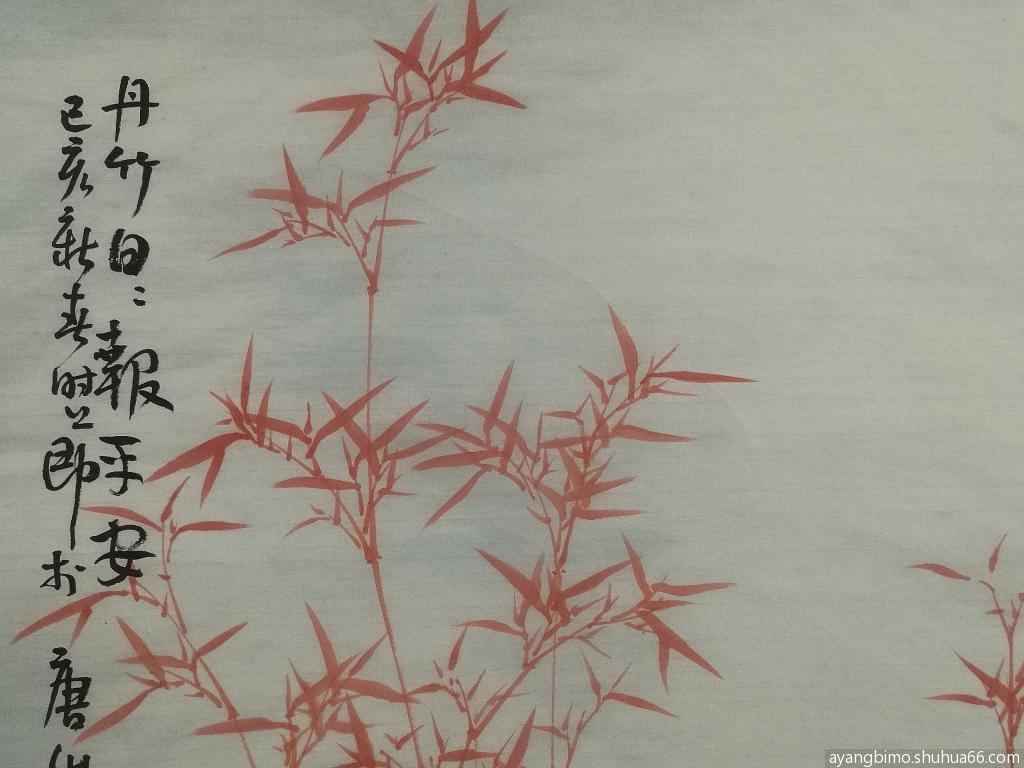 丹竹日﹕報平安
己亥新春時上即於 唐
ayangbimo.shuhua66.com